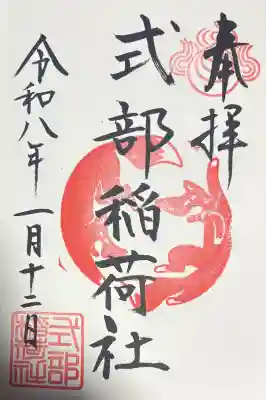 奉拝
式部稲荷社
令和八年 一月十二日
式部稲荷社